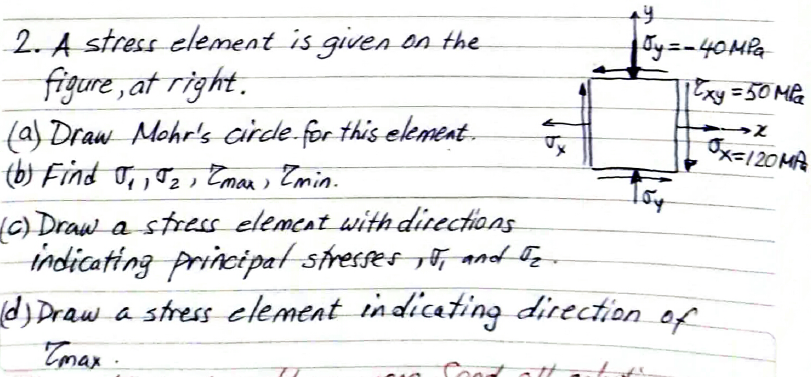 2. A stress element is given on the
figure, at right.
(a) Draw Mohr's circle for this element.
(b) Find σ₁, σ₂, τmax, τmin.
(c) Draw a stress element with directions
indicating principal stresses, σ₁ and σ₂.
(d) Draw a stress element indicating direction of
τmax.
y
σy = -40 MPa
τxy = 50 MPa
x
σx
σx = 120 MPa
σy